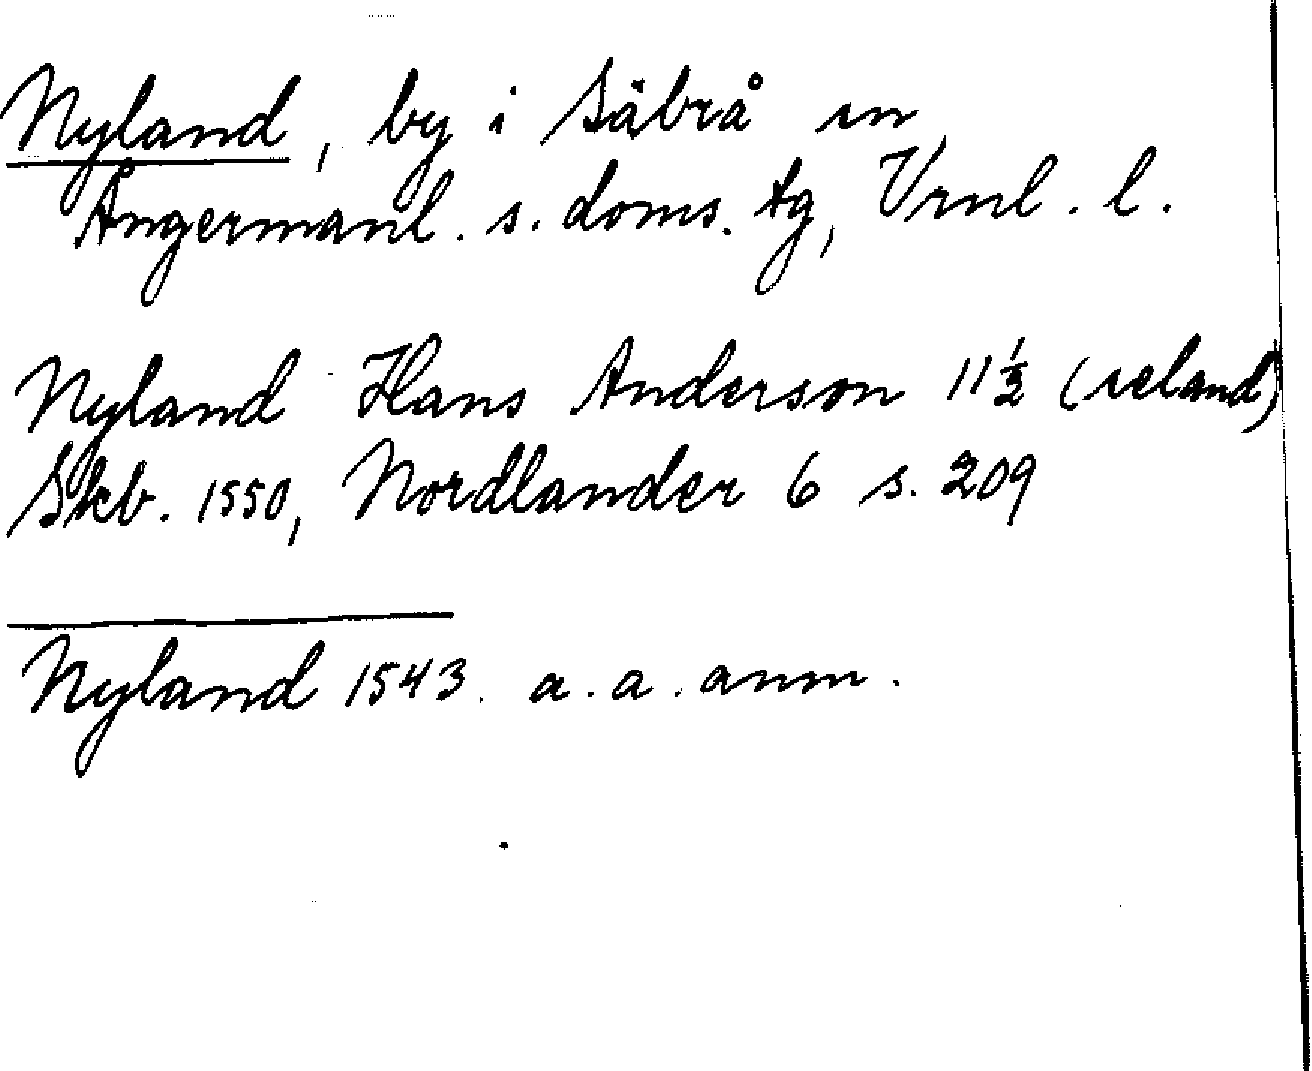 Nyland, by i Säbrå sn
Ångermanl. s. doms. tg, Vrnl. l.
Nyland Hans Anderson 11½ (seland)
Skb. 1550, Nordlander 6 s. 209
Nyland 1543. a. a. anm.